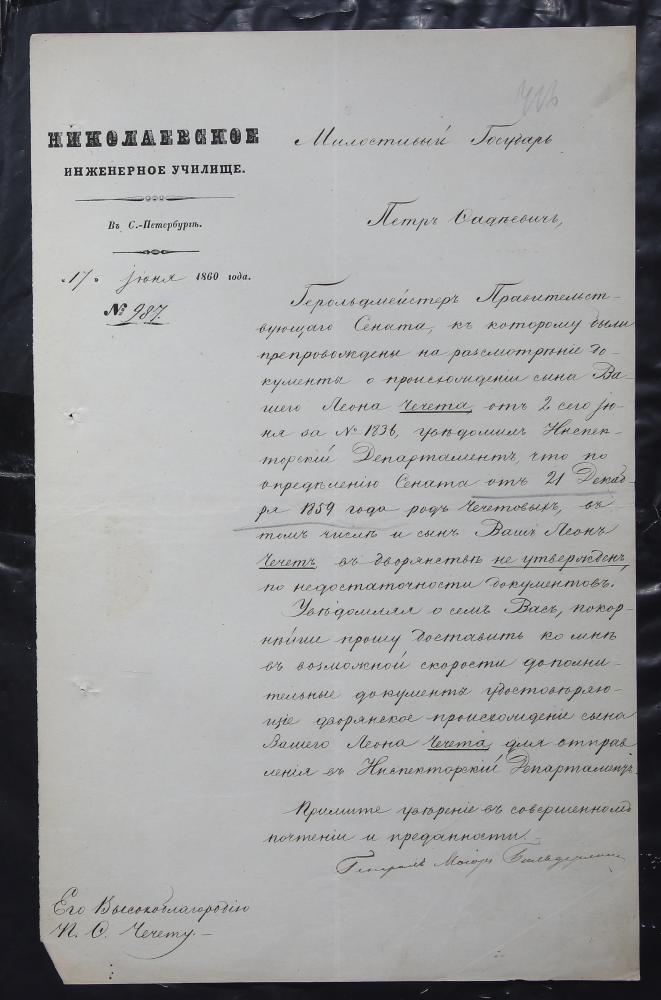 НИКОЛАЕВСКОЕ
ИНЖЕНЕРНОЕ УЧИЛИЩЕ.
Въ С.-Петербургѣ.
„17„ Іюня 1860 года.
№ 987.
Милостивый Государь
Петръ Фадѣевичъ,
Герольдмейстеръ Правительст-
вующаго Сената, къ которому были
препровождены на разсмотрѣніе до-
кументы о происхожденіи сына Ва-
шего Леона Чечета, отъ 2 сего Ію-
ня за № 1836, увѣдомилъ Инспек-
торскій Департаментъ, что по
опредѣленію Сената отъ 21 Декаб-
ря 1859 года родъ Чечетовыхъ, въ
томъ числѣ и сынъ Вашъ Леонъ
Чечетъ въ дворянствѣ не утвержденъ,
по недостаточности документовъ.
Увѣдомляя о семъ Васъ, покор-
нѣйше прошу доставить ко мнѣ
въ возможной скорости дополни-
тельные документы удостовѣряю-
щіе дворянское происхожденіе сына
Вашего Леона Чечета, для отправ
ленія въ Инспекторскій Департаментъ.
Примите увѣреніе въ совершенномъ
почтеніи и преданности.
Генералъ Маіоръ
Его Высокоблагородію
П. Ф. Чечету.